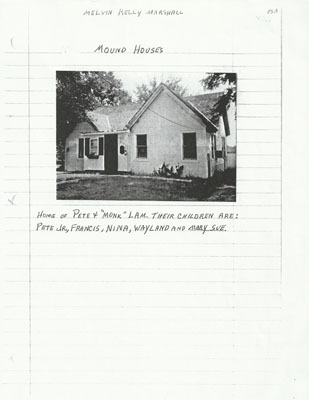 MELVIN KELLY MARSHALL
MOUND HOUSES
HOME OF PETE & "MONK" LAM. THEIR CHILDREN ARE:
PETE JR, FRANCIS, NINA, WAYLAND AND MARY SUE.